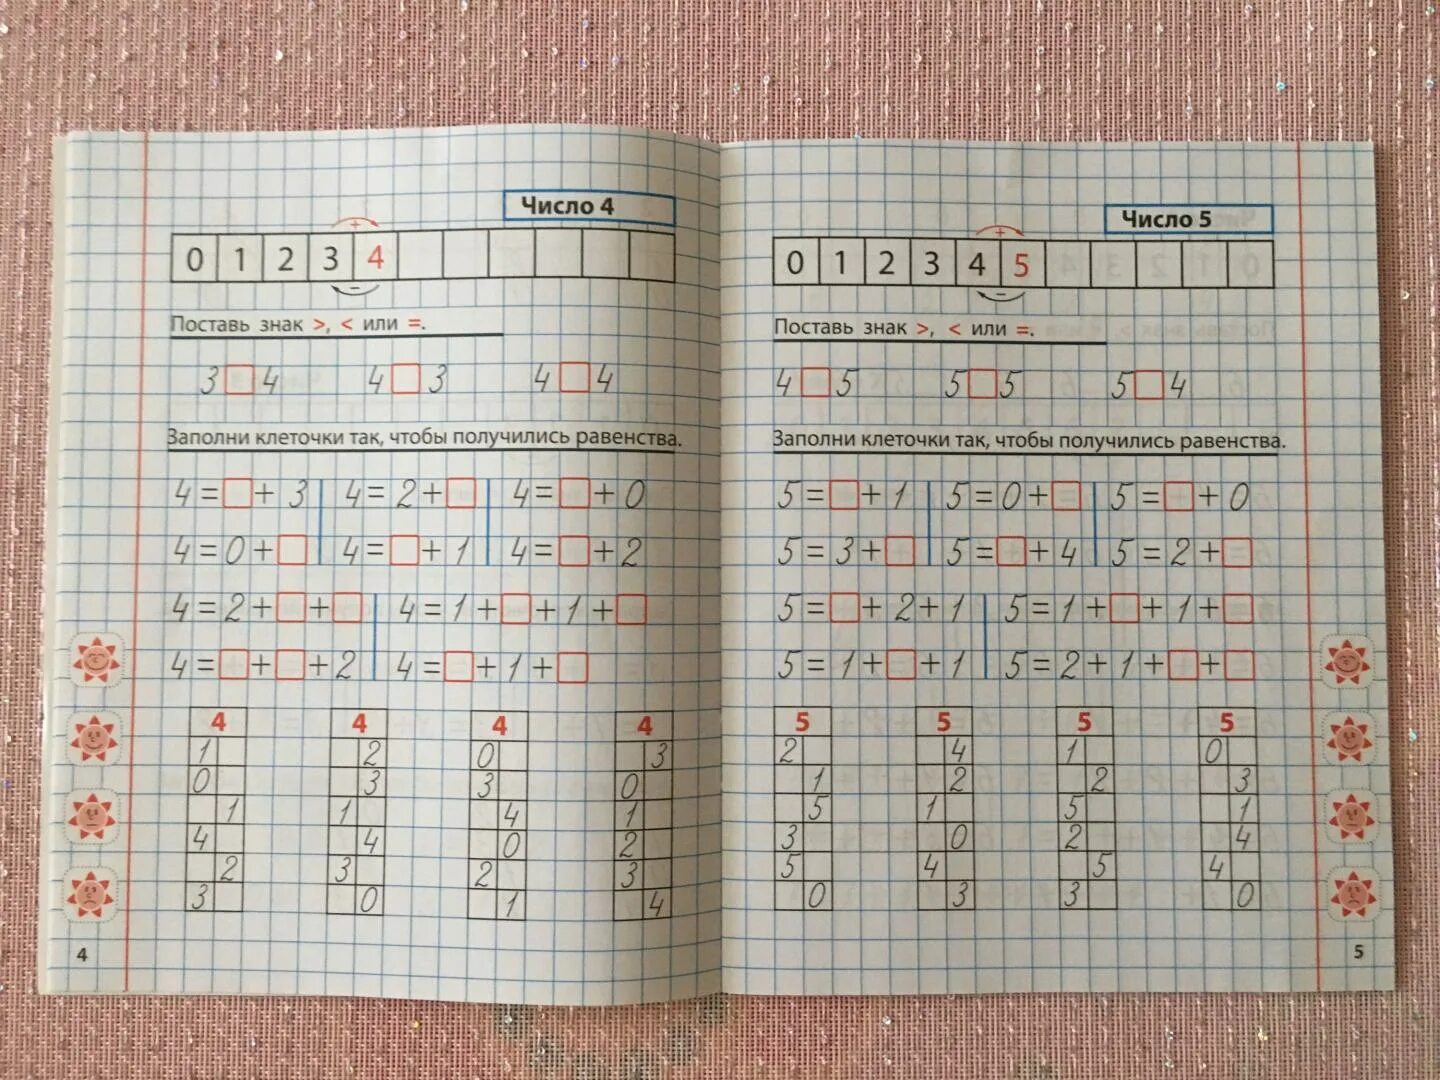 Число 4
+
0 1 2 3 4
−
Поставь знак >, < или =.
3 □ 4 4 □ 3 4 □ 4
Заполни клеточки так, чтобы получились равенства.
4 = □ + 3 4 = 2 + □ 4 = □ + 0
4 = 0 + □ 4 = □ + 1 4 = □ + 2
4 = 2 + □ + □ 4 = 1 + □ + 1 + □
4 = □ + □ + 2 4 = □ + 1 + □
4 4 4 4
1 2 0 3
0 3 3 0
1 1 4 1
4 4 0 2
2 3 2 3
3 0 1 4
4
Число 5
+
0 1 2 3 4 5
−
Поставь знак >, < или =.
4 □ 5 5 □ 5 5 □ 4
Заполни клеточки так, чтобы получились равенства.
5 = □ + 1 5 = 0 + □ 5 = □ + 0
5 = 3 + □ 5 = □ + 4 5 = 2 + □
5 = □ + 2 + 1 5 = 1 + □ + 1 + □
5 = 1 + □ + 1 5 = 2 + 1 + □ + □
5 5 5 5
2 4 1 0
1 2 2 3
5 1 5 1
3 0 2 4
5 4 5 4
0 3 3 0
5